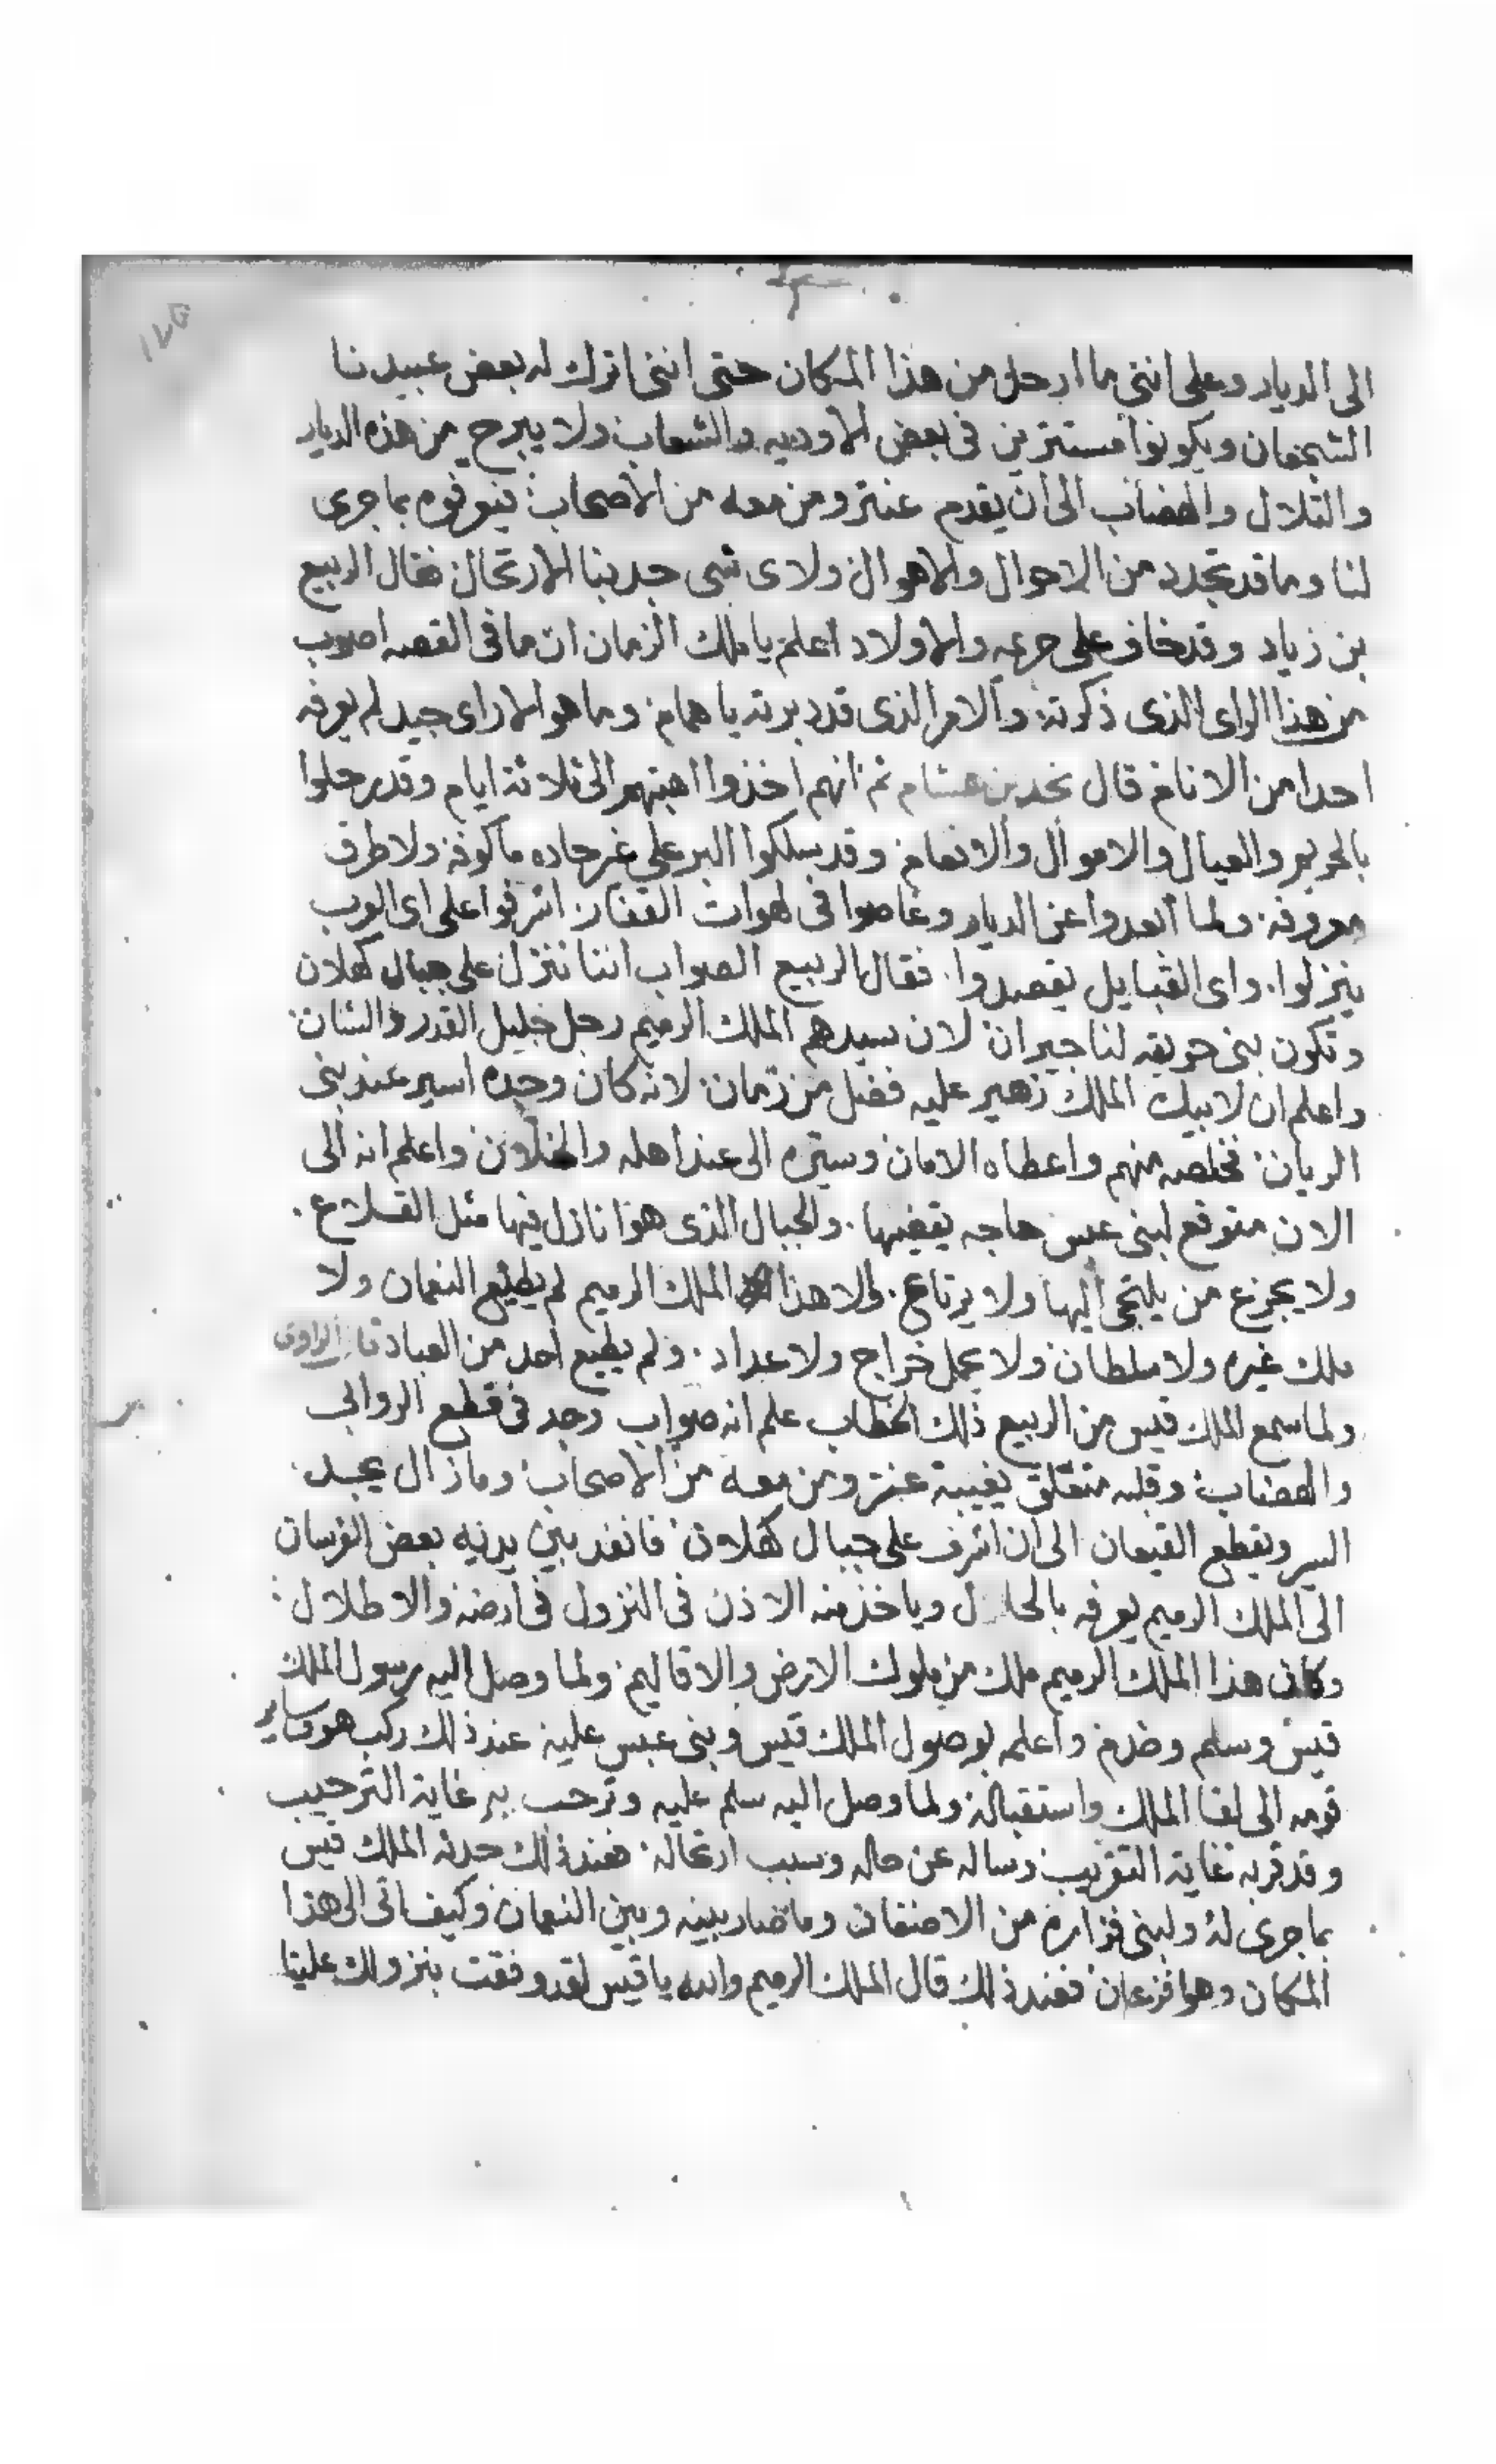 ١٧٥
الى الديار وعلى انني ما ارحل من هذا المكان حتى انني اترك له بعض عبيدنا
الشجعان ويكونوا مستترين في بعض الاوديه والشعاب ولا يبرح من هذه الديار
والتلال والهضاب الى ان يقدم عنتر ومن معه من الاصحاب فيعرفوه بما جرى
لنا وما قد تجدد من الاحوال والاهوال ولاى شى جد بنا الارتحال فقال الربيع
بن زياد وقد خاف على حريمه والاولاد اعلم يا ملك الزمان ان ما في القصه اصوب
من هذا الراى الذى ذكرته والامر الذى قد دبرته يا همام وما هو الا راى جيد لم يعرفه
احدا من الانام قال نجد بن هشام ثم انهم اخذوا اهبتهم الى ثلاثة ايام وقد رحلوا
بالحريم والعيال والاموال والانعام وقد سلكوا البر على غير جاده مالوفه ولا طرق
معروفه ولما ابعدوا عن الديار وغاصوا في لهوات القفار اشرفوا على اى العرب
ينزلوا واى القبايل يقصدوا فقال الربيع الصواب اننا ننزل على جبال كهلان
وتكون بنى حريقه لنا جيران لان سيدهم الملك الرميم رجل جليل القدر والشان
واعلم ان لابيك الملك زهير عليه فضل من زمان لانه كان وجده اسير عند بنى
الريان فخلصه منهم واعطاه الامان وسيره الى عند اهله والخلان واعلم انه الى
الان متوقع لبنى عبس حاجه يقضيها والجبال الذى هوا نازل فيها مثل القلاع
ولا يجزع من يلتجى اليها ولا يرتاع والا هذا الملك الرميم لم يطيع النعمان ولا
ملك غيره ولا سلطان ولا يحمل خراج ولا عداد ولم يطيع احد من العباد قال الراوى
ولما سمع الملك قيس من الربيع ذلك الخطاب علم انه صواب وجد في قطع الروابي
والهضاب وقلبه متعلق بغيبة عنتر ومن معه من الاصحاب وما زال يجد
السير ويقطع القيعان الى ان اشرف على جبال كهلان فانفد بين يديه بعض الفرسان
الى الملك الرميم يعرفه بالحال وياخذ منه الاذن في النزول في ارضه والاطلال
وكان هذا الملك الرميم ملك من ملوك الارض والاقاليم ولما وصل اليه رسول الملك
قيس وسلم وخدم واعلمه بوصول الملك قيس وبنى عبس عليه عند ذلك ركب هو وساير
قومه الى لقا الملك واستقباله ولما وصل اليه سلم عليه وترحب به غاية الترحيب
وقد قربه غاية التقريب وساله عن حاله وسبب ارتحاله فعند ذلك حدثه الملك قيس
بما جرى له ولبنى فزاره من الاضغان وما صار بينه وبين النعمان وكيف اتى الى هذا
المكان وهوا فزعان فعند ذلك قال الملك الرميم والله يا قيس لقد وفقت بنزولك علينا